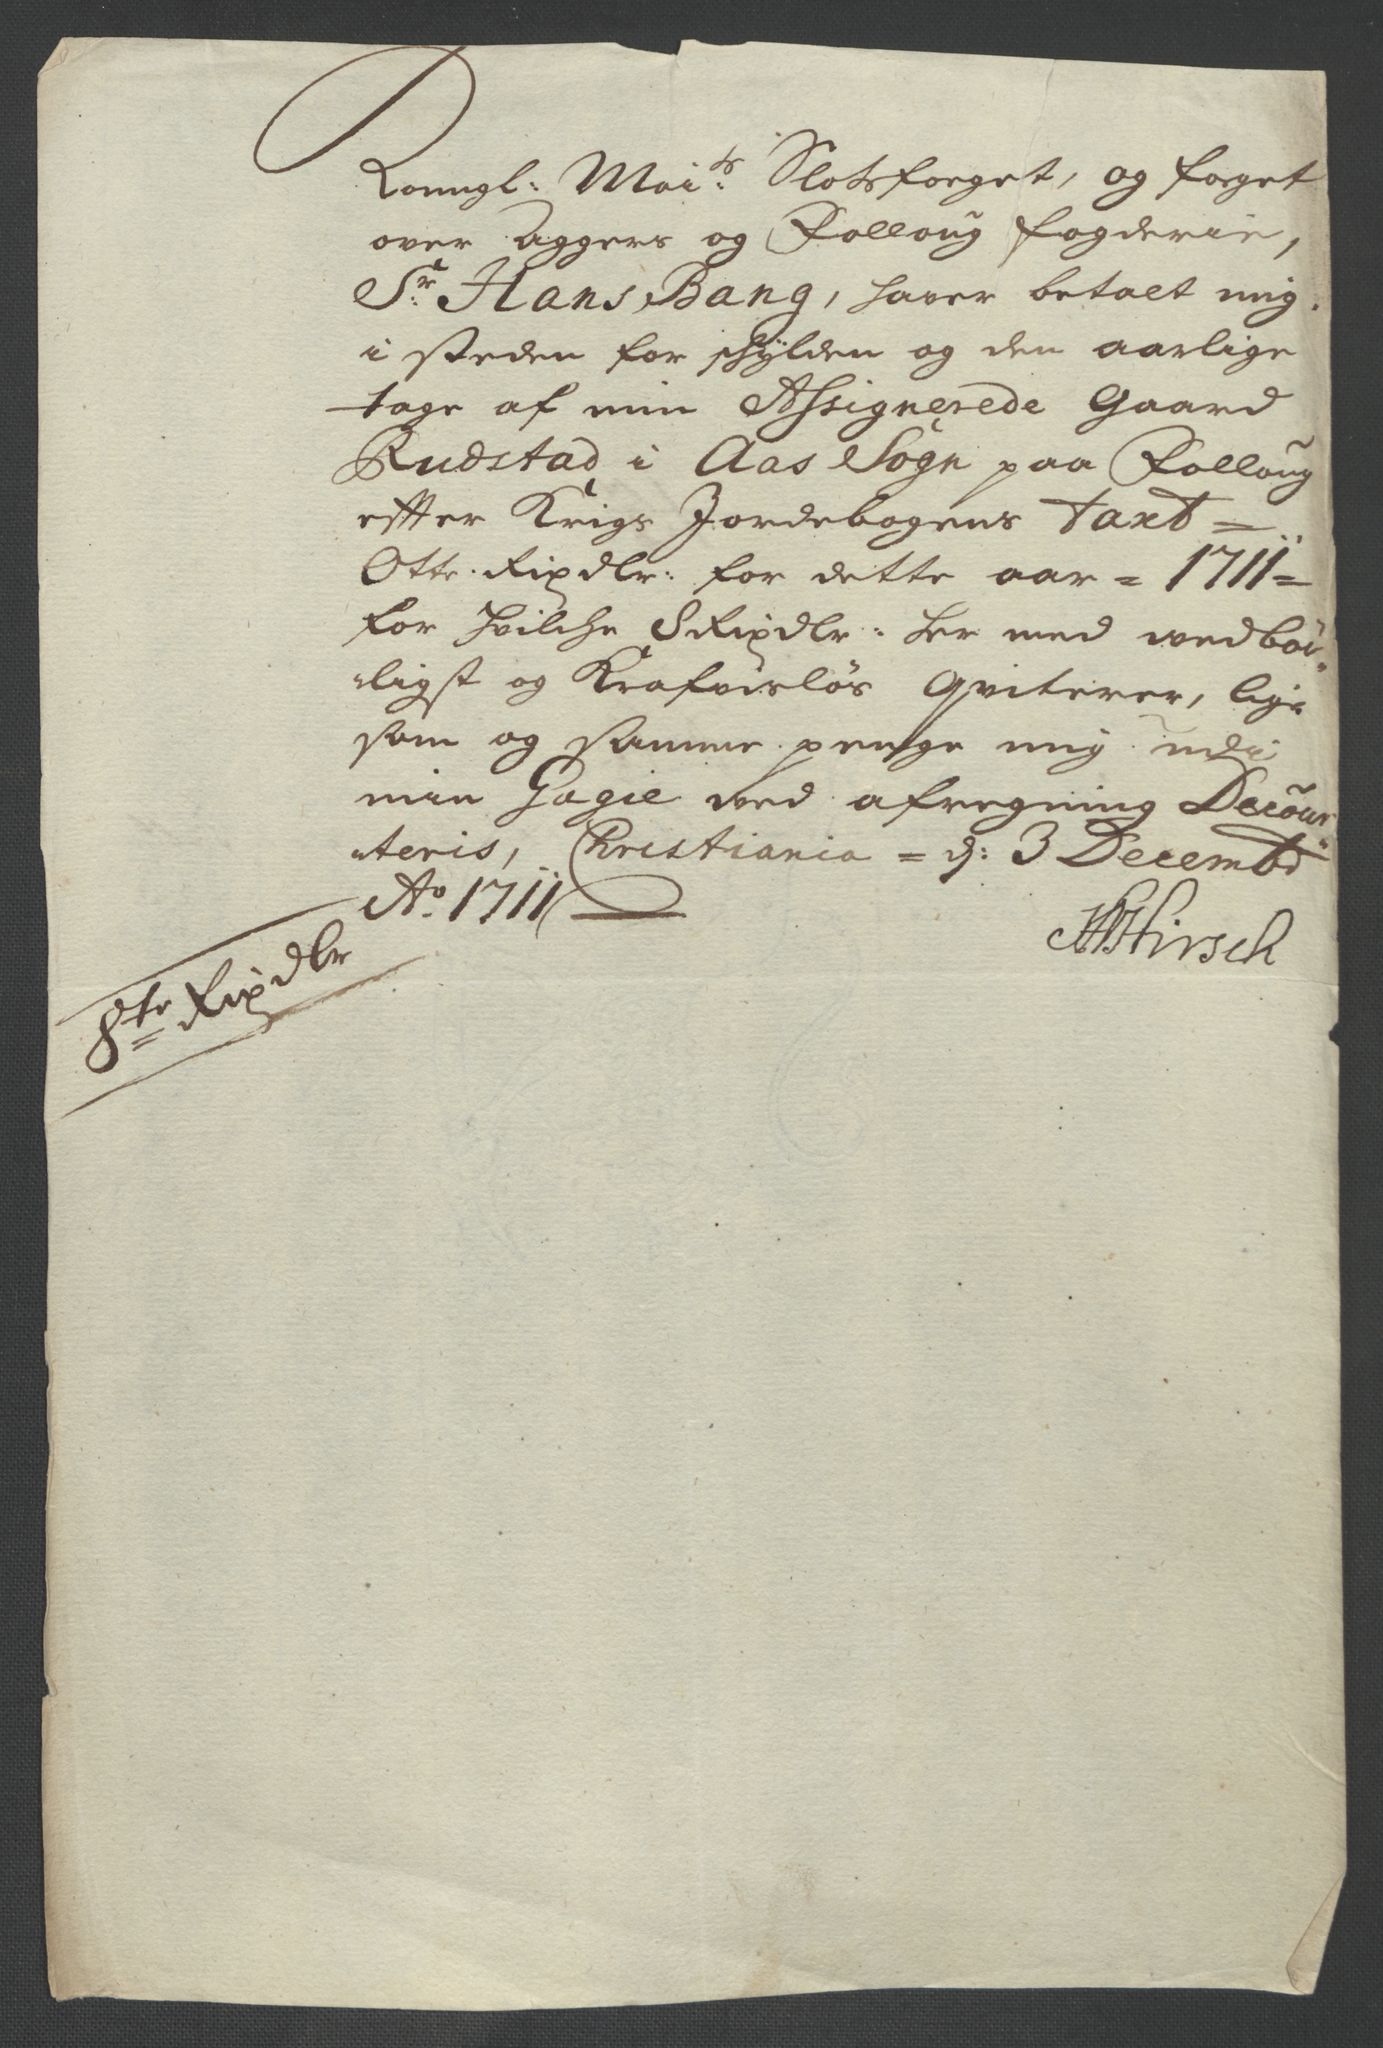 Konngl: Mai:ts Slotsfoeget, og foeget
over Aggers og Folloug fogderie,
Sr: Hans Bang, haver betalt mig
i steden for schylden og den aarlige
tage af min Assignerede Gaard
Rudstad i Aas Sogn paa Folloug
effter Krigs Jordebogens taxt =
Otte Rixdlr: for dette aar = 1711 =
for hvilche 8 Rixdlr: her med vedbör„
„ligst og Krafvislös Qviterer, lige
som og samme penge mig udi
min Gagie ved afregning Decour„
„teris, Christiania = d: 3 Decembr
Ao. 1711
HHirsch
8te Rixdlr